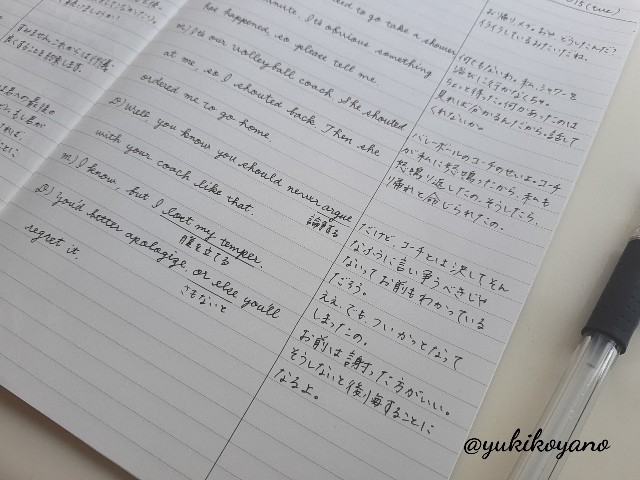 need to go take a shower
minute. It's obvious something
has happened, so please tell me.
M) It's our volleyball coach. She shouted
at me, so I shouted back. Then she
ordered me to go home.
D) Well you know you should never argue
論争する
with your coach like that.
M) I know, but I lost my temper.
腹を立てる
D) You'd better apologize, or else you'll
さもないと
regret it.
(tue)
イライラしているみたいだね。
何でもないわ。私、シャワーを
浴びに行かなくちゃ。
ちょっと待った。何かあったのは
見れば分かるんだから。話して
くれないか。
バレーボールのコーチのせいよ。コーチ
が私に怒鳴ったから、私も
怒鳴り返したの。そうしたら、
帰れと命じられたの。
だけど、コーチとは決してそん
なふうに言い争うべきじゃ
ないってお前もわかっている
だろう。
ええ、でも、ついかっとなって
しまったの。
お前は謝った方がいい。
そうしないと後悔することに
なるよ。
@yukikoyano